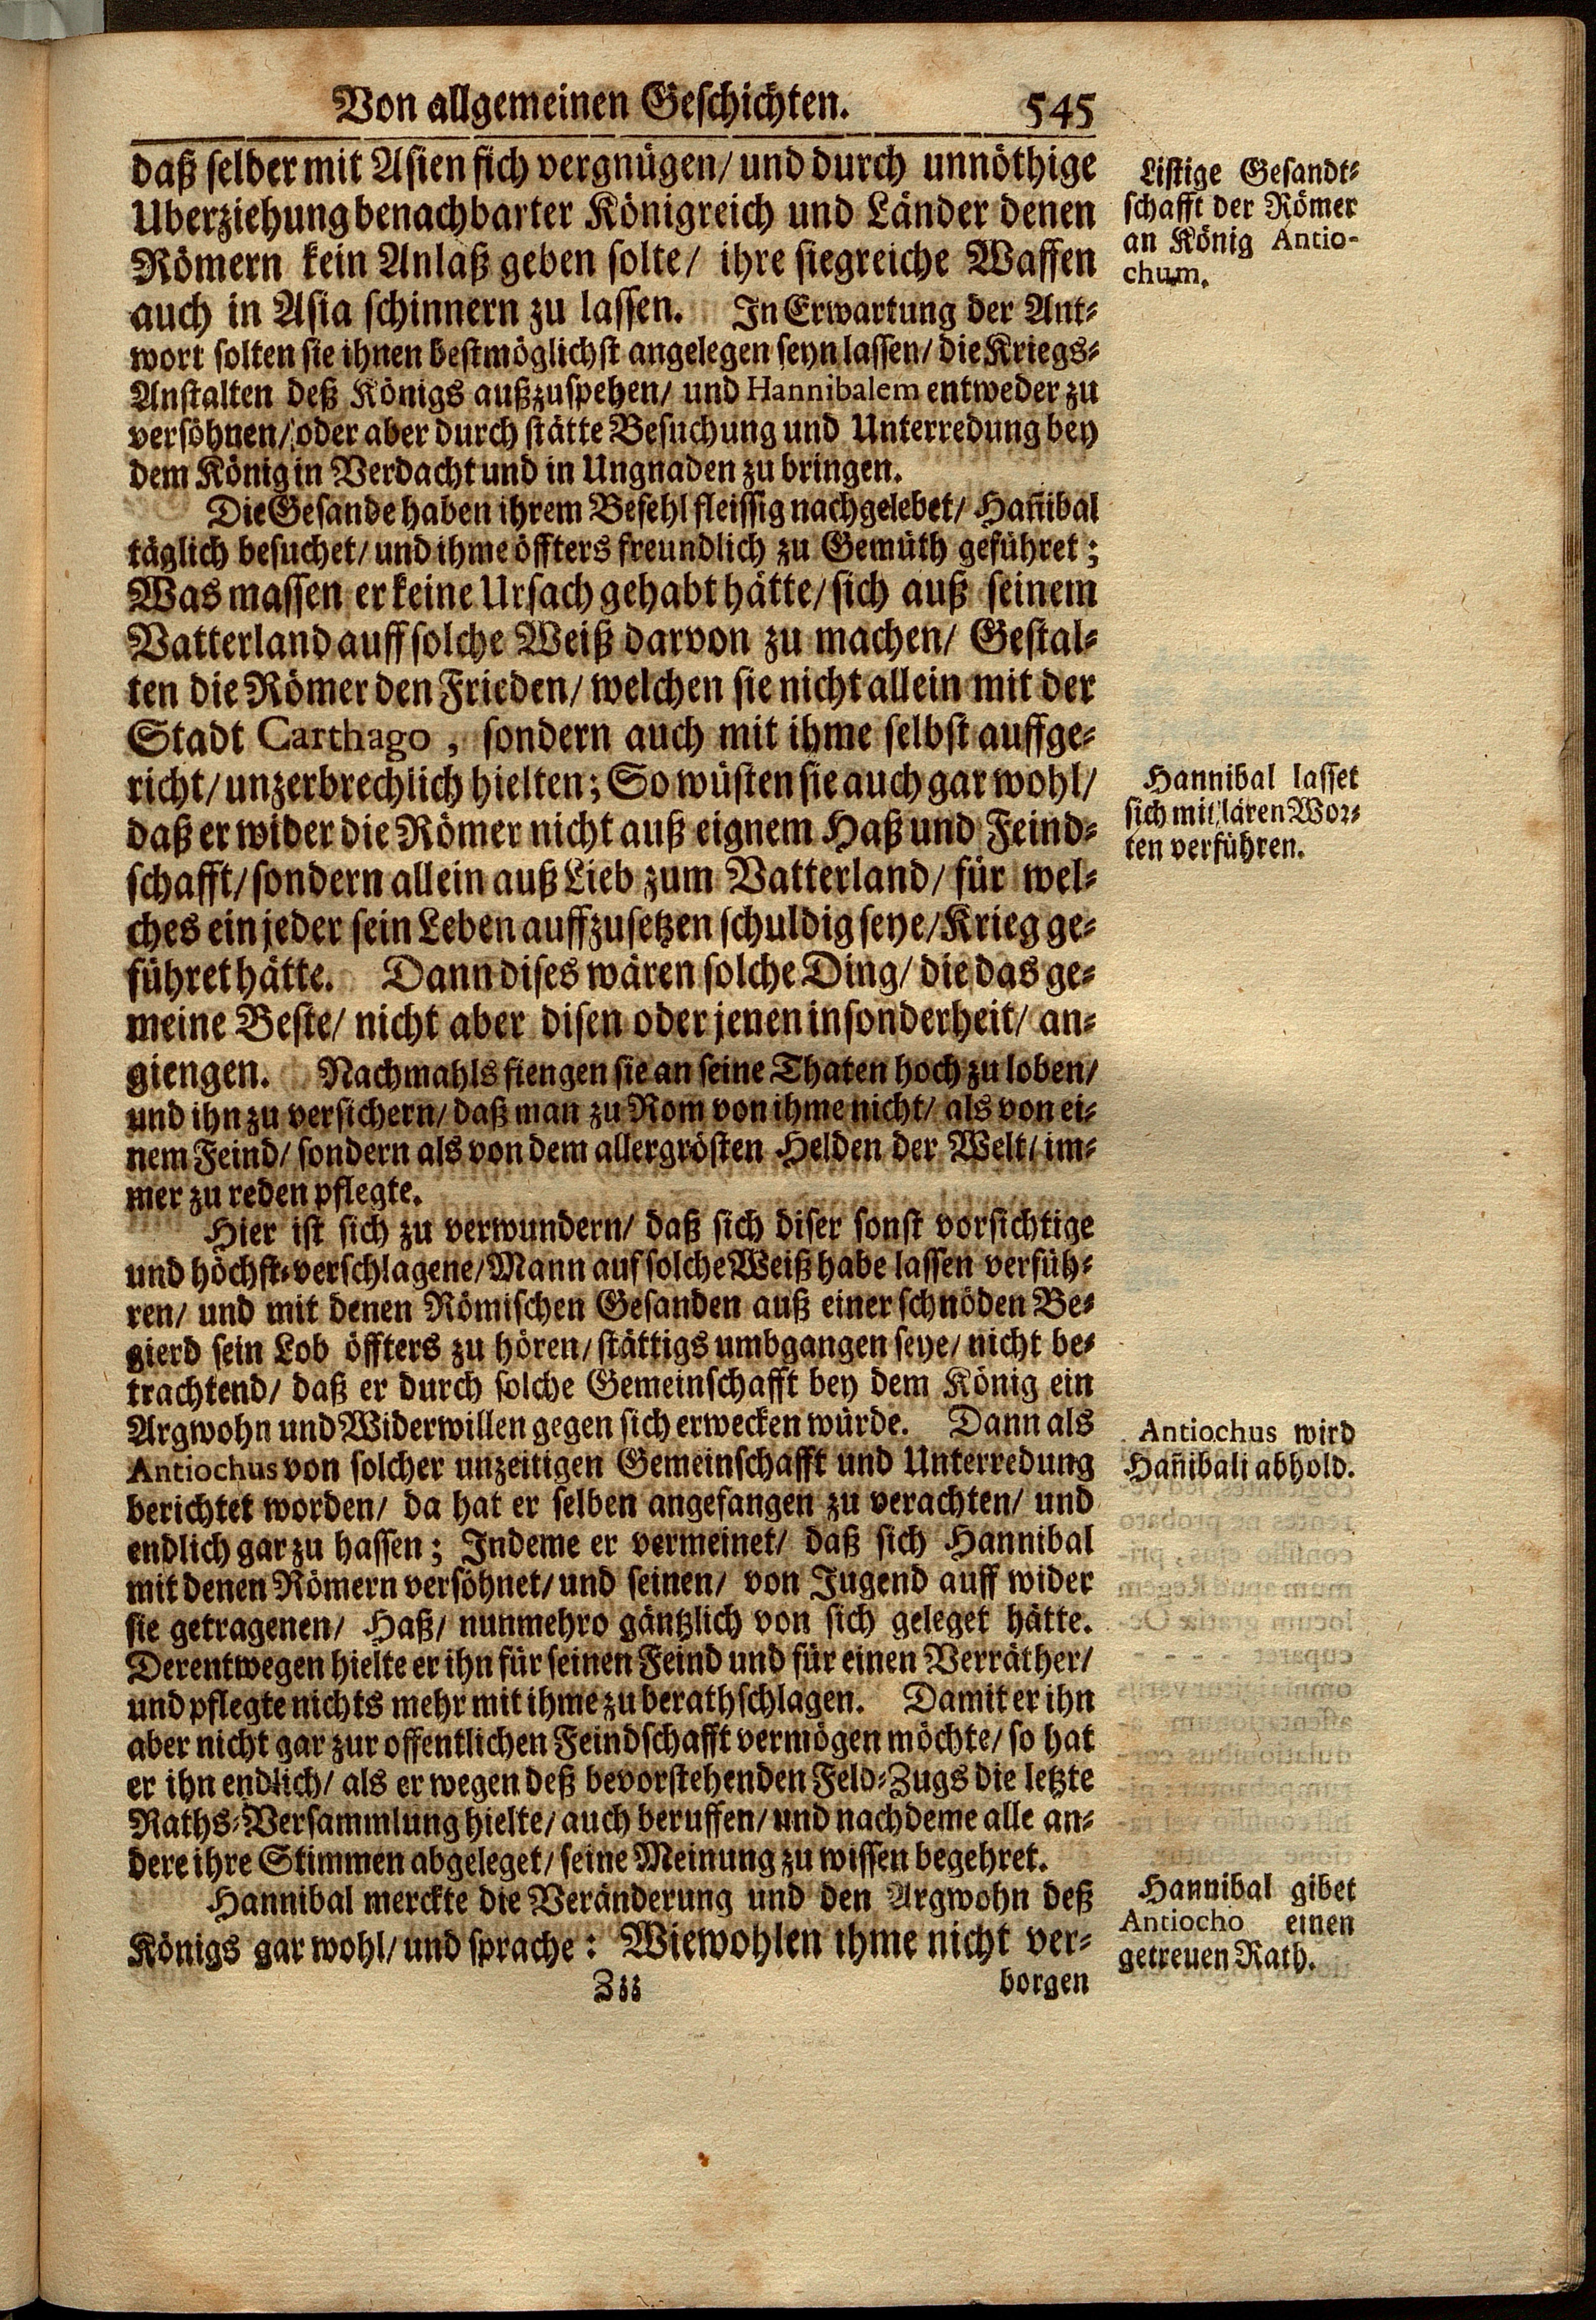 Von allgemeinen Geschichten. 545
daß selder mit Asien sich vergnügen/ und durch unnöthige
Uberziehung benachbarter Königreich und Länder denen
Römern kein Anlaß geben solte/ ihre siegreiche Waffen
auch in Asia schinnern zu lassen. In Erwartung der Ant-
wort solten sie ihnen bestmöglichst angelegen seyn lassen/ die Kriegs-
Anstalten deß Königs außzuspehen/ und Hannibalem entweder zu
versöhnen/ oder aber durch stätte Besuchung und Unterredung bey
dem König in Verdacht und in Ungnaden zu bringen.
Die Gesande haben ihrem Befehl fleissig nachgelebet/ Han̄ibal
täglich besuchet/ und ihme öffters freundlich zu Gemüth geführet;
Was massen er keine Ursach gehabt hätte/ sich auß seinem
Vatterland auff solche Weiß darvon zu machen/ Gestal-
ten die Römer den Frieden/ welchen sie nicht allein mit der
Stadt Carthago, sondern auch mit ihme selbst auffge-
richt/ unzerbrechlich hielten; So wüsten sie auch gar wohl/
daß er wider die Römer nicht auß eignem Haß und Feind-
schafft/ sondern allein auß Lieb zum Vatterland/ für wel-
ches ein jeder sein Leben auffzusetzen schuldig seye/ Krieg ge-
führet hätte. Dann dises wären solche Ding/ die das ge-
meine Beste/ nicht aber disen oder jenen insonderheit/ an-
giengen. Nachmahls fiengen sie an seine Thaten hoch zu loben/
und ihn zu versichern/ daß man zu Rom von ihme nicht/ als von ei-
nem Feind/ sondern als von dem allergrösten Helden der Welt/ im-
mer zu reden pflegte.
Hier ist sich zu verwundern/ daß sich diser sonst vorsichtige
und höchst-verschlagene/ Mann auf solche Weiß habe lassen verfüh-
ren/ und mit denen Römischen Gesanden auß einer schnöden Be-
gierd sein Lob öffters zu hören/ stättigs umbgangen seye/ nicht be-
trachtend/ daß er durch solche Gemeinschafft bey dem König ein
Argwohn und Widerwillen gegen sich erwecken würde. Dann als
Antiochus von solcher unzeitigen Gemeinschafft und Unterredung
berichtet worden/ da hat er selben angefangen zu verachten/ und
endlich gar zu hassen; Indeme er vermeinet/ daß sich Hannibal
mit denen Römern versöhnet/ und seinen/ von Jugend auff wider
sie getragenen/ Haß/ nunmehro gäntzlich von sich geleget hätte.
Derentwegen hielte er ihn für seinen Feind und für einen Verräther/
und pflegte nichts mehr mit ihme zu berathschlagen. Damit er ihn
aber nicht gar zur offentlichen Feindschafft vermögen möchte/ so hat
er ihn endlich/ als er wegen deß bevorstehenden Feld-Zugs die letzte
Raths-Versammlung hielte/ auch beruffen/ und nachdeme alle an-
dere ihre Stimmen abgeleget/ seine Meinung zu wissen begehret.
Hannibal merckte die Veränderung und den Argwohn deß
Königs gar wohl/ und sprache: Wiewohlen ihme nicht ver-
Zzz borgen
Listige Gesandt-
schafft der Römer
an König Antio-
chum.
Hannibal lasset
sich mit lären Wor-
ten verführen.
Antiochus wird
Han̄ibali abhold.
Hannibal gibet
Antiocho einen
getreuen Rath.